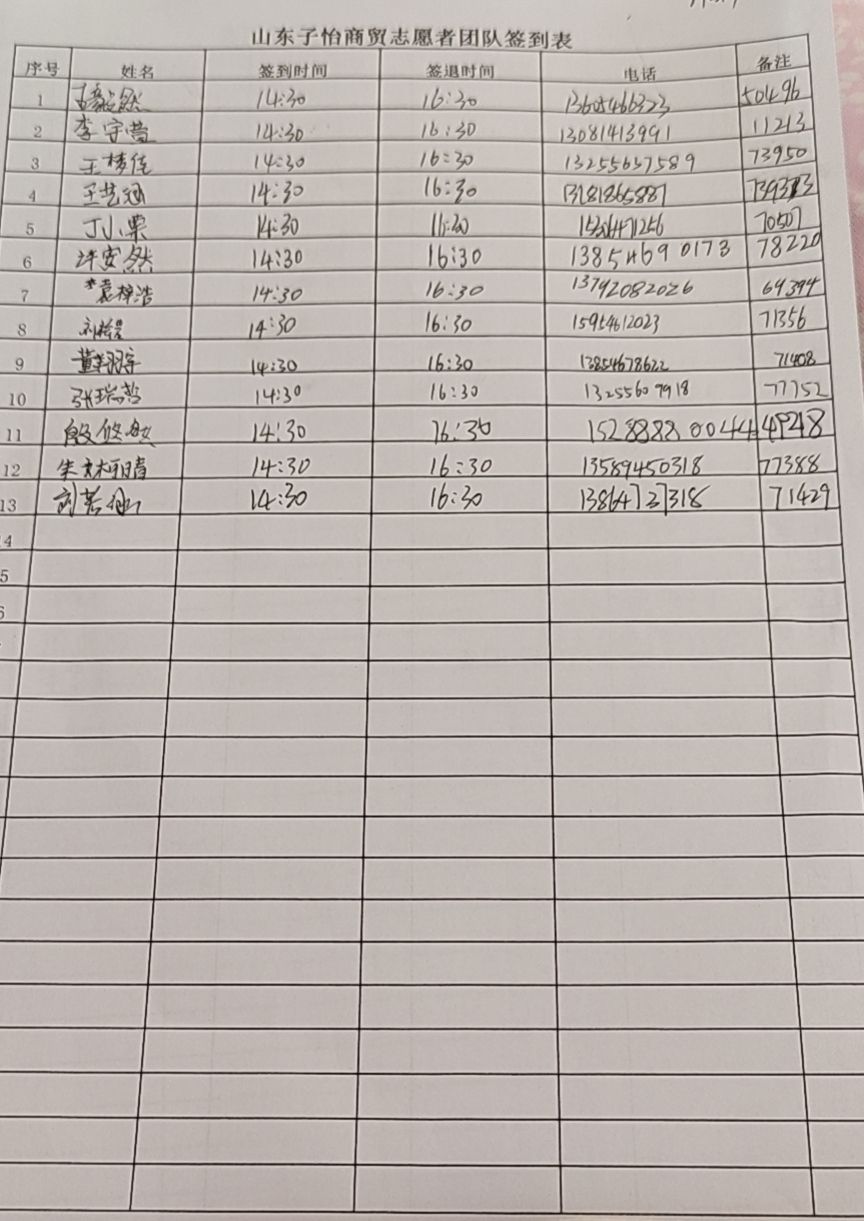 山东子怡商贸志愿者团队签到表
序号 姓名 签到时间 签退时间 电话 备注
1 14:30 16:30 13605466323 50496
2 李宇萱 14:30 16:30 13081413991 11213
3 王梦佳 14:30 16:30 13255637589 73950
4 王艺涵 14:30 16:30 13181865887
5 丁小栗 14:30 16:30 15306471256 70507
6 许安然 14:30 16:30 13854690173 78220
7 袁梓浩 14:30 16:30 13792082026 64394
8 14:30 16:30 15954612023 71356
9 董羽宇 14:30 16:30 13854678622 71408
10 张瑞哲 14:30 16:30 13255607918 77752
11 殷悠然 14:30 16:30 15288880044 44948
12 朱 14:30 16:30 13589450318 77388
13 刘若仙 14:30 16:30 13864737318 71429
4
5